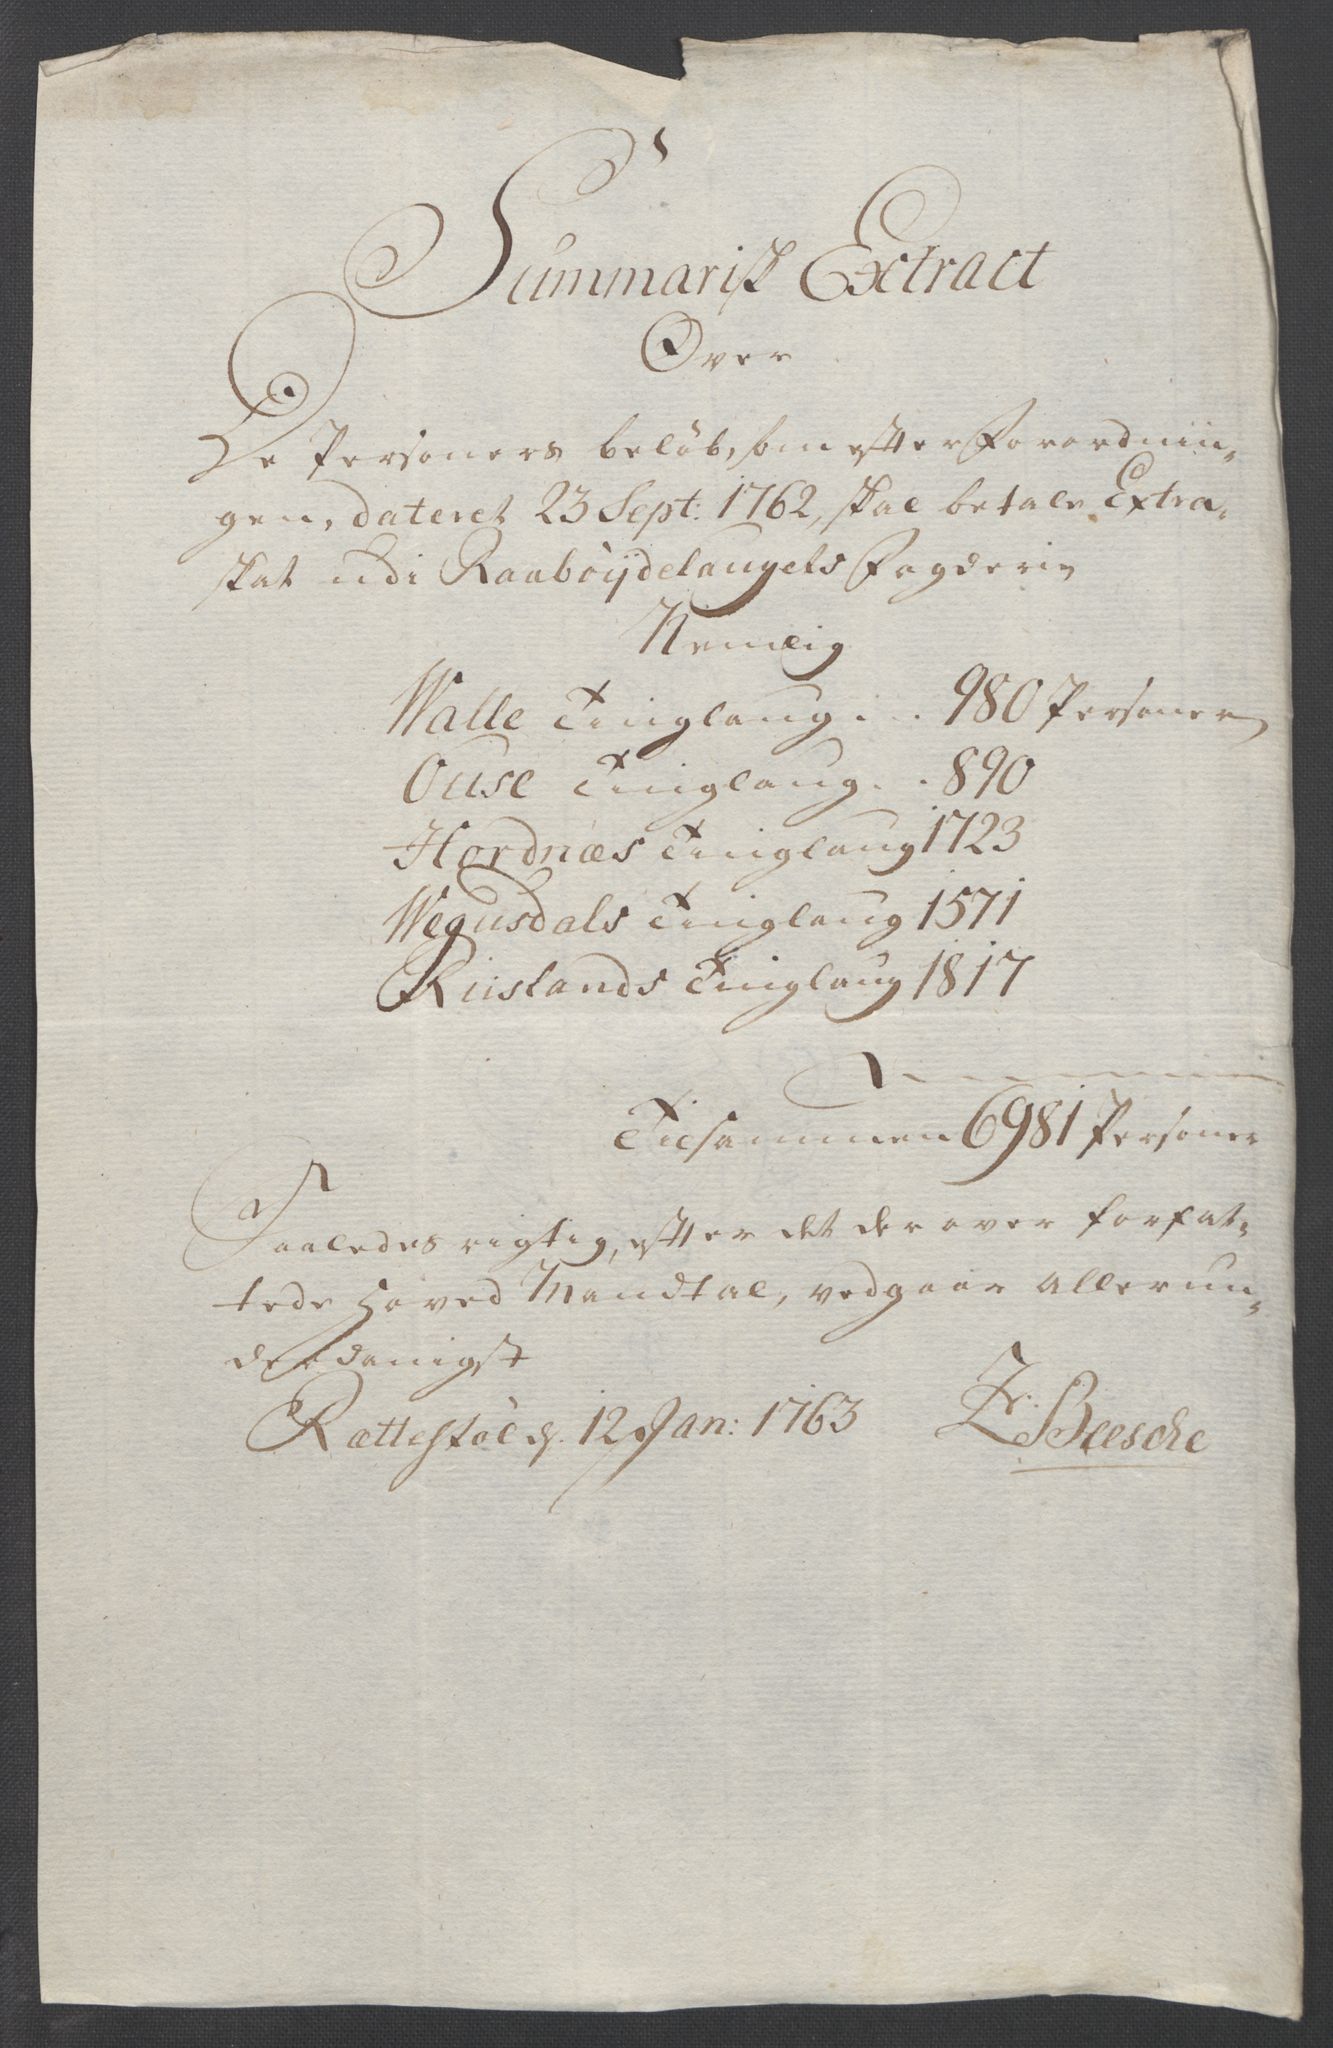 Summarisk Extract
Over
De Personers beløb, som efter Forordnin-
gen, dateret 23 Sept: 1762, skal betale Extra-
skat udi Raabøijdelaugets Fogderie
Nemlig
Walle Tinglaug . . 980 Personer
Ouse Tinglaug . . 890
Hordnæs Tinglaug 1723
Wegusdals Tinglaug 1571
Riislands Tinglaug 1817
Tilsammen 6981 Personer
Saaledes rigtig, efter det derover forfat-
tede Hoved Mandtal, vedgaar allerun-
derdanigst
Rættestøl d. 12 Jan: 1763
Beesche